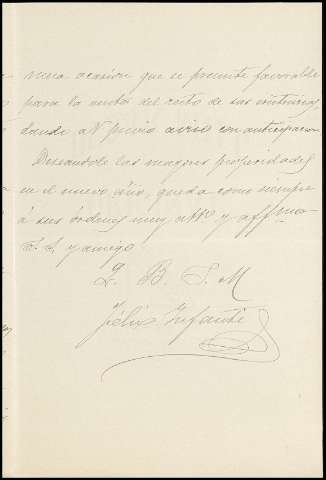 mera ocasion que se presente favorable
para la venta del resto de sus existencias,
dando a V previo aviso con anticipacion
Deseandole las mayores prosperidades
en el nuevo año, queda como siempre
á sus órdenes muy atto y affmo
S. S. y amigo
Q. B. S. M
Félix Infante